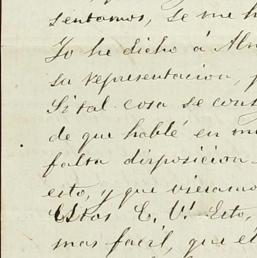 sentamos, se me h
Yo he dicho á Alm
su representacion, p
Si tal cosa se cons
de que hablé en mi
falta disposicion
esto, y que vieramo
C. V. Esto,
mas facil, que el